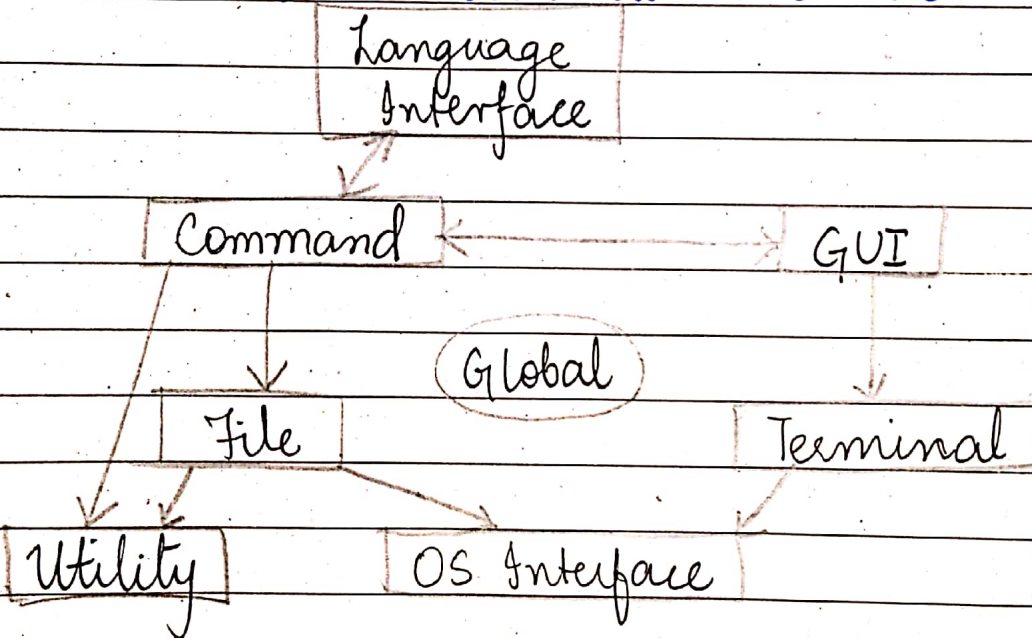 Language
Interface
Command
GUI
Global
File
Terminal
Utility
OS Interface